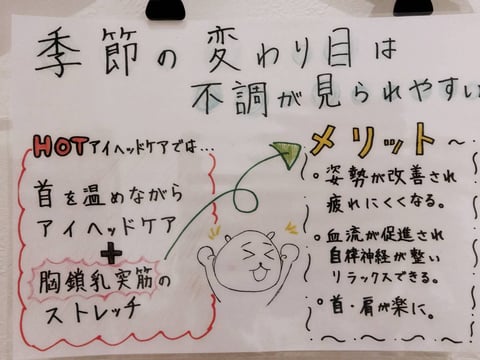 季節の変わり目は
不調が見られやすい
HOTアイヘッドケアでは…
首を温めながら
アイヘッドケア
+
胸鎖乳突筋の
ストレッチ
メリット〜
。姿勢が改善され
疲れにくくなる。
。血流が促進され
自律神経が整い
リラックスできる。
。首・肩が楽に。